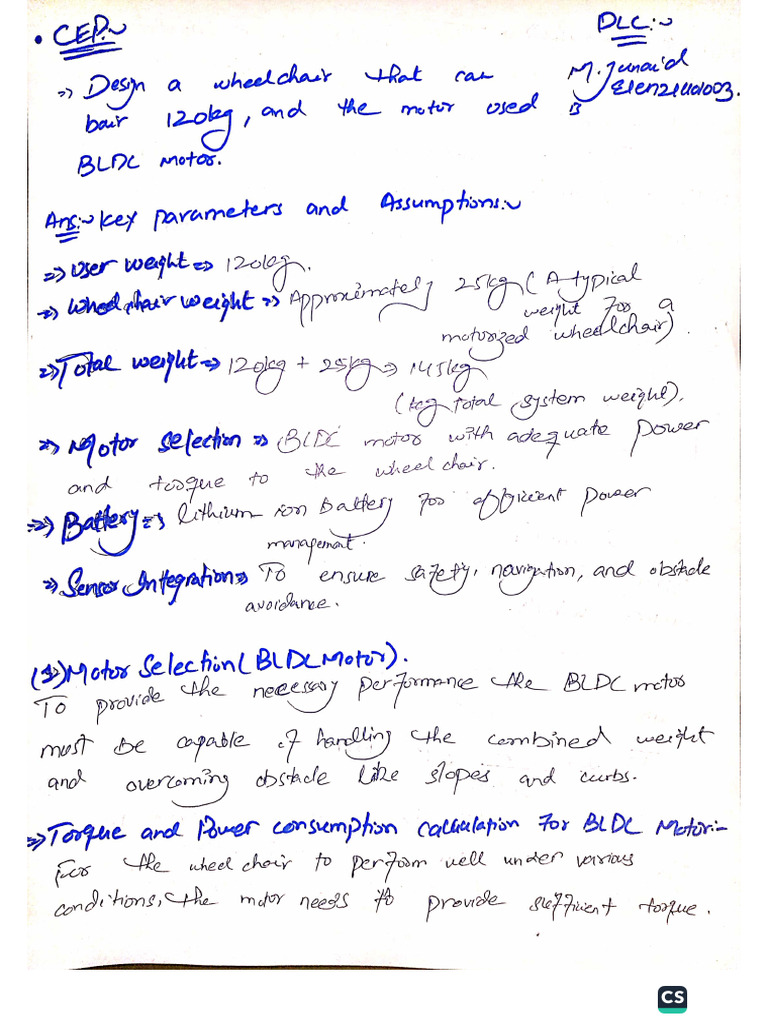 • CEP:~
DLC:~
=> Design a wheelchair that can
M. Junaid
bair 120kg, and the motor used is
BLDC motor.
Ans:~ Key parameters and Assumptions:~
=> User weight => 120kg.
=> Wheelchair weight => Approximately 25kg (A typical
weight for a
motorized wheelchair).
=> Total weight => 120kg + 25kg => 145kg
(kg total system weight).
=> Motor Selection => BLDC motor with adequate power
and torque to the wheelchair.
=> Battery => lithium-ion battery for efficient power
management.
=> Sensor Integration => To ensure safety, navigation, and obstacle
avoidance.
(1) Motor Selection (BLDC Motor).
To provide the necessary performance the BLDC motor
must be capable of handling the combined weight
and overcoming obstacle like slopes and curbs.
=> Torque and Power consumption calculation for BLDC Motor:-
For the wheelchair to perform well under various
conditions, the motor needs to provide sufficient torque.
CS